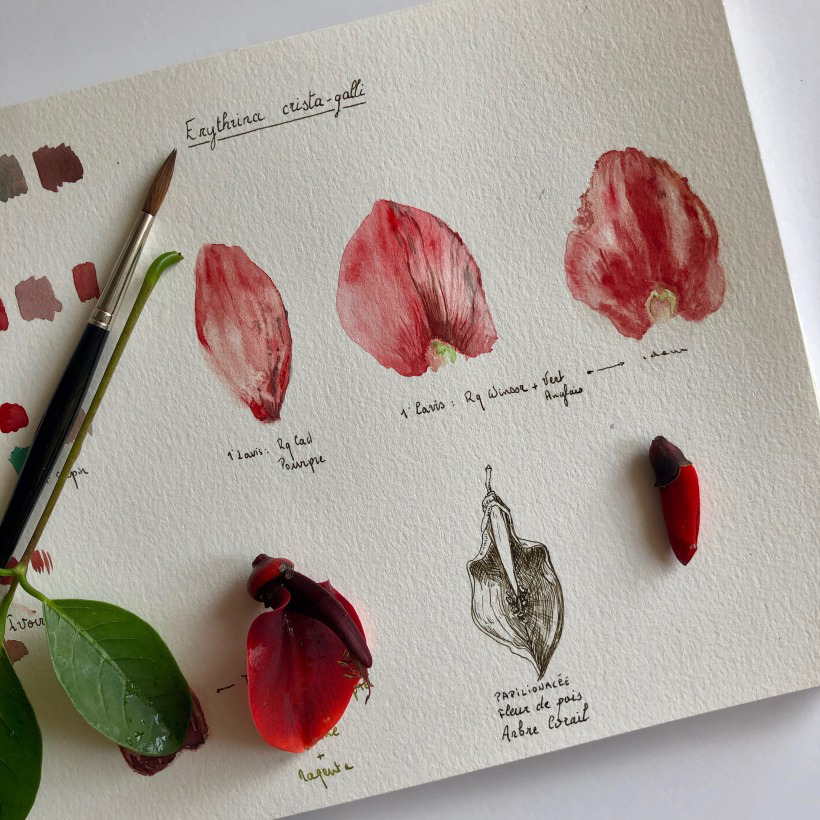 Erythrina crista-galli
1° Lavis : Rg Cad
Pourpre
1° Lavis : Rg Winsor + Vert
Anglais
idem
Ivoir
PAPILIONACÉE
Fleur de pois
Arbre Corail
+
Magenta